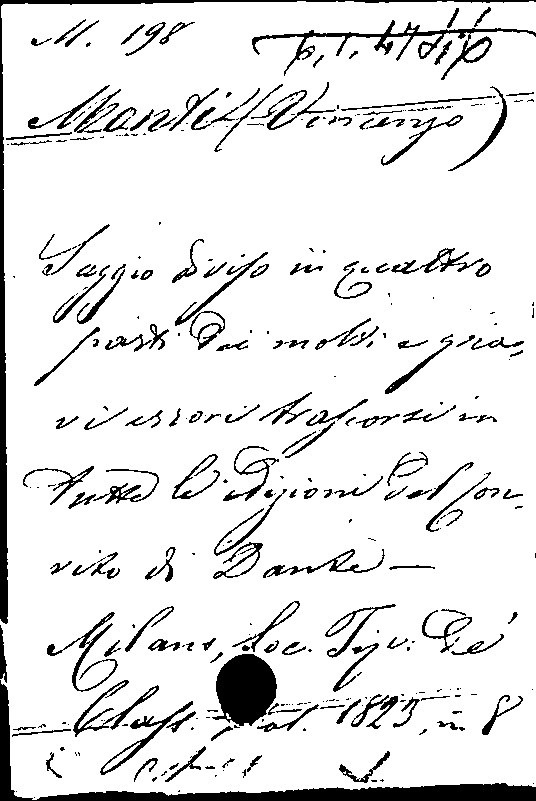 M. 198
Monti (Vincenzo)
Saggio diviso in quattro
parti dei molti e gra-
vi errori trascorsi in
tutte le edizioni del Con-
vito di Dante —
Milano, Soc. Tip. de'
Class. Ital. 1823, in 8